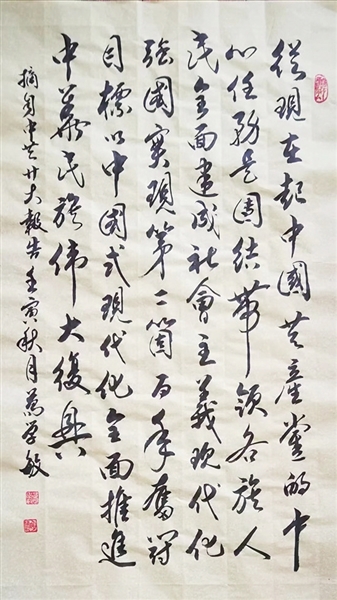 從現在起中國共產黨的中
心任務是團結帶領各族人
民全面建成社會主義現代化
強國實現第二箇百年奮鬥
目標以中國式現代化全面推進
中華民族偉大復興
摘自中共廿大報告壬寅秋月萬学敏